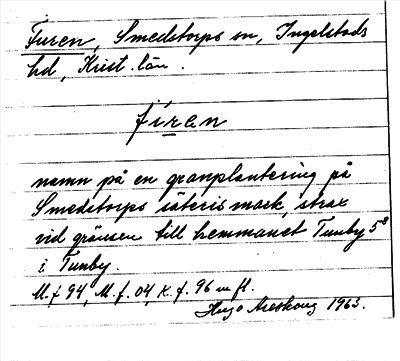 Furen, Smedstorps sn, Ingelstads
hd, Krist. län.
firen
namn på en granplantering på
Smedstorps säteris mark, strax
vid gränsen till hemmanet Tunby 5⁸
i Tunby.
M. f 94, M. f. 04, K. f. 96 m fl.
Hugo Areskoug 1963.